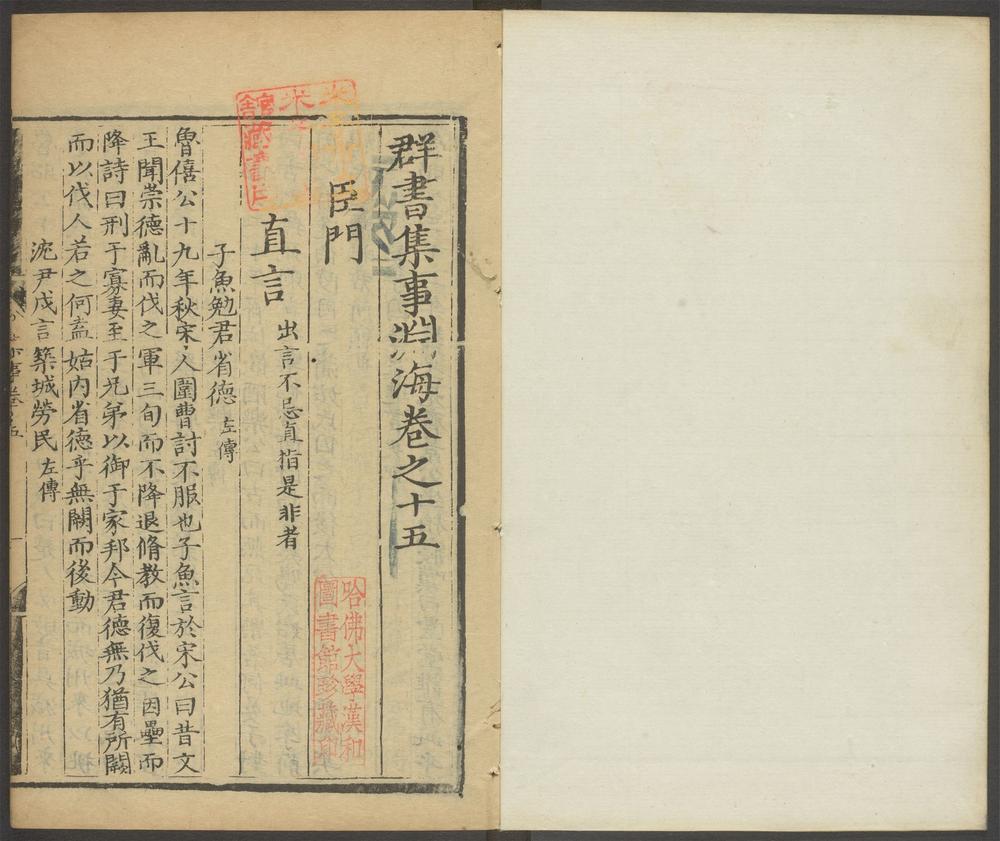 群書集事淵海卷之十五
臣門
直言 出言不忌直指是非者
子魚勉君省德 左傳
魯僖公十九年秋宋人圍曹討不服也子魚言於宋公曰昔文
王聞崇德亂而伐之軍三旬而不降退脩教而復伐之因壘而
降詩曰刑于寡妻至于兄弟以御于家邦今君德無乃猶有所闕
而以伐人若之何盍姑内省德乎無闕而後動
沈尹戍言築城勞民 左傳
哈佛大學漢和
圖書館珍藏印
藏書